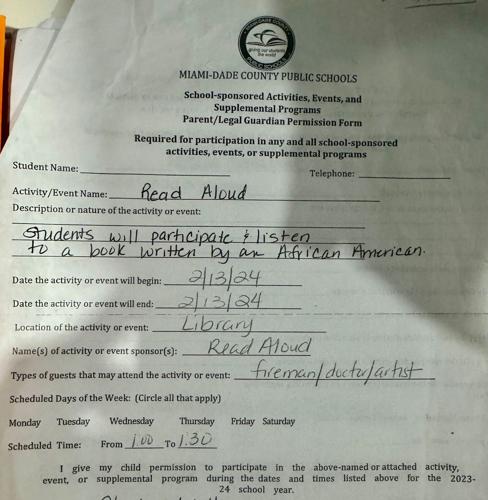 MIAMI-DADE COUNTY
giving our students the world
PUBLIC SCHOOLS
MIAMI-DADE COUNTY PUBLIC SCHOOLS
School-sponsored Activities, Events, and
Supplemental Programs
Parent/Legal Guardian Permission Form
Required for participation in any and all school-sponsored
activities, events, or supplemental programs
Student Name:
Telephone:
Activity/Event Name: Read Aloud
Description or nature of the activity or event:
Students will participate & listen
to a book written by an African American.
Date the activity or event will begin: 2/13/24
Date the activity or event will end: 2/13/24
Location of the activity or event: Library
Name(s) of activity or event sponsor(s): Read Aloud
Types of guests that may attend the activity or event: fireman/doctor/artist
Scheduled Days of the Week: (Circle all that apply)
Monday Tuesday Wednesday Thursday Friday Saturday
Scheduled Time: From 1:00 To 1:30
I give my child permission to participate in the above-named or attached activity,
event, or supplemental program during the dates and times listed above for the 2023-
24 school year.